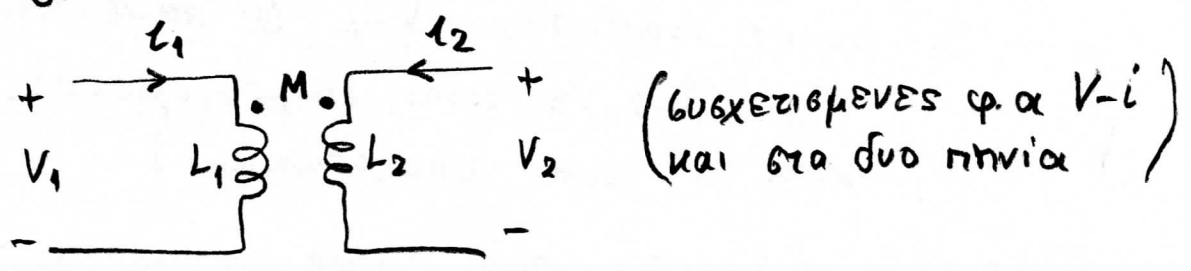 i₁ i₂
+ M +
V₁ L₁ L₂ V₂
- -
(συσχετισμενες φ.α V-i
και στα δυο πηνία)